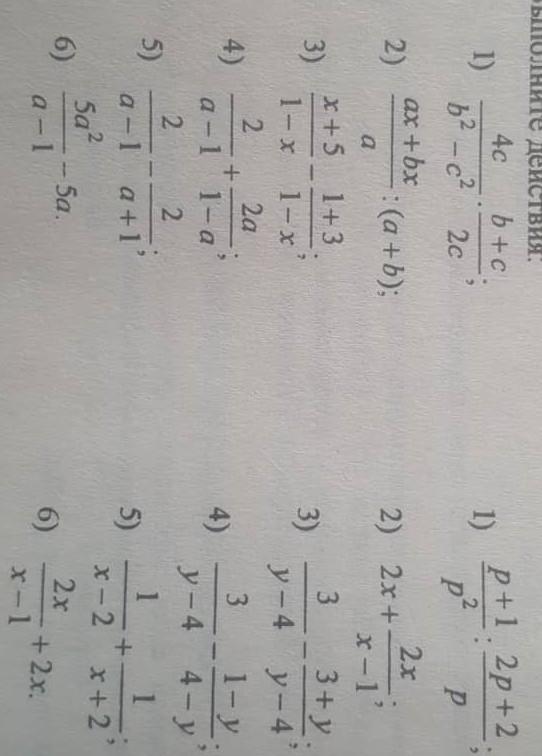 выполните действия:
1) 4c/(b² − c²) · (b + c)/(2c);
2) (ax + bx)/a : (a + b);
3) (x + 5)/(1 − x) − (1 + 3)/(1 − x);
4) 2/(a − 1) + 2a/(1 − a);
5) 2/(a − 1) − 2/(a + 1);
6) 5a²/(a − 1) − 5a.
1) (p + 1)/p² : (2p + 2)/p,
2) 2x + 2x/(x − 1);
3) 3/(y − 4) − (3 + y)/(y − 4);
4) 3/(y − 4) − (1 − y)/(4 − y);
5) 1/(x − 2) + 1/(x + 2);
6) 2x/(x − 1) + 2x.